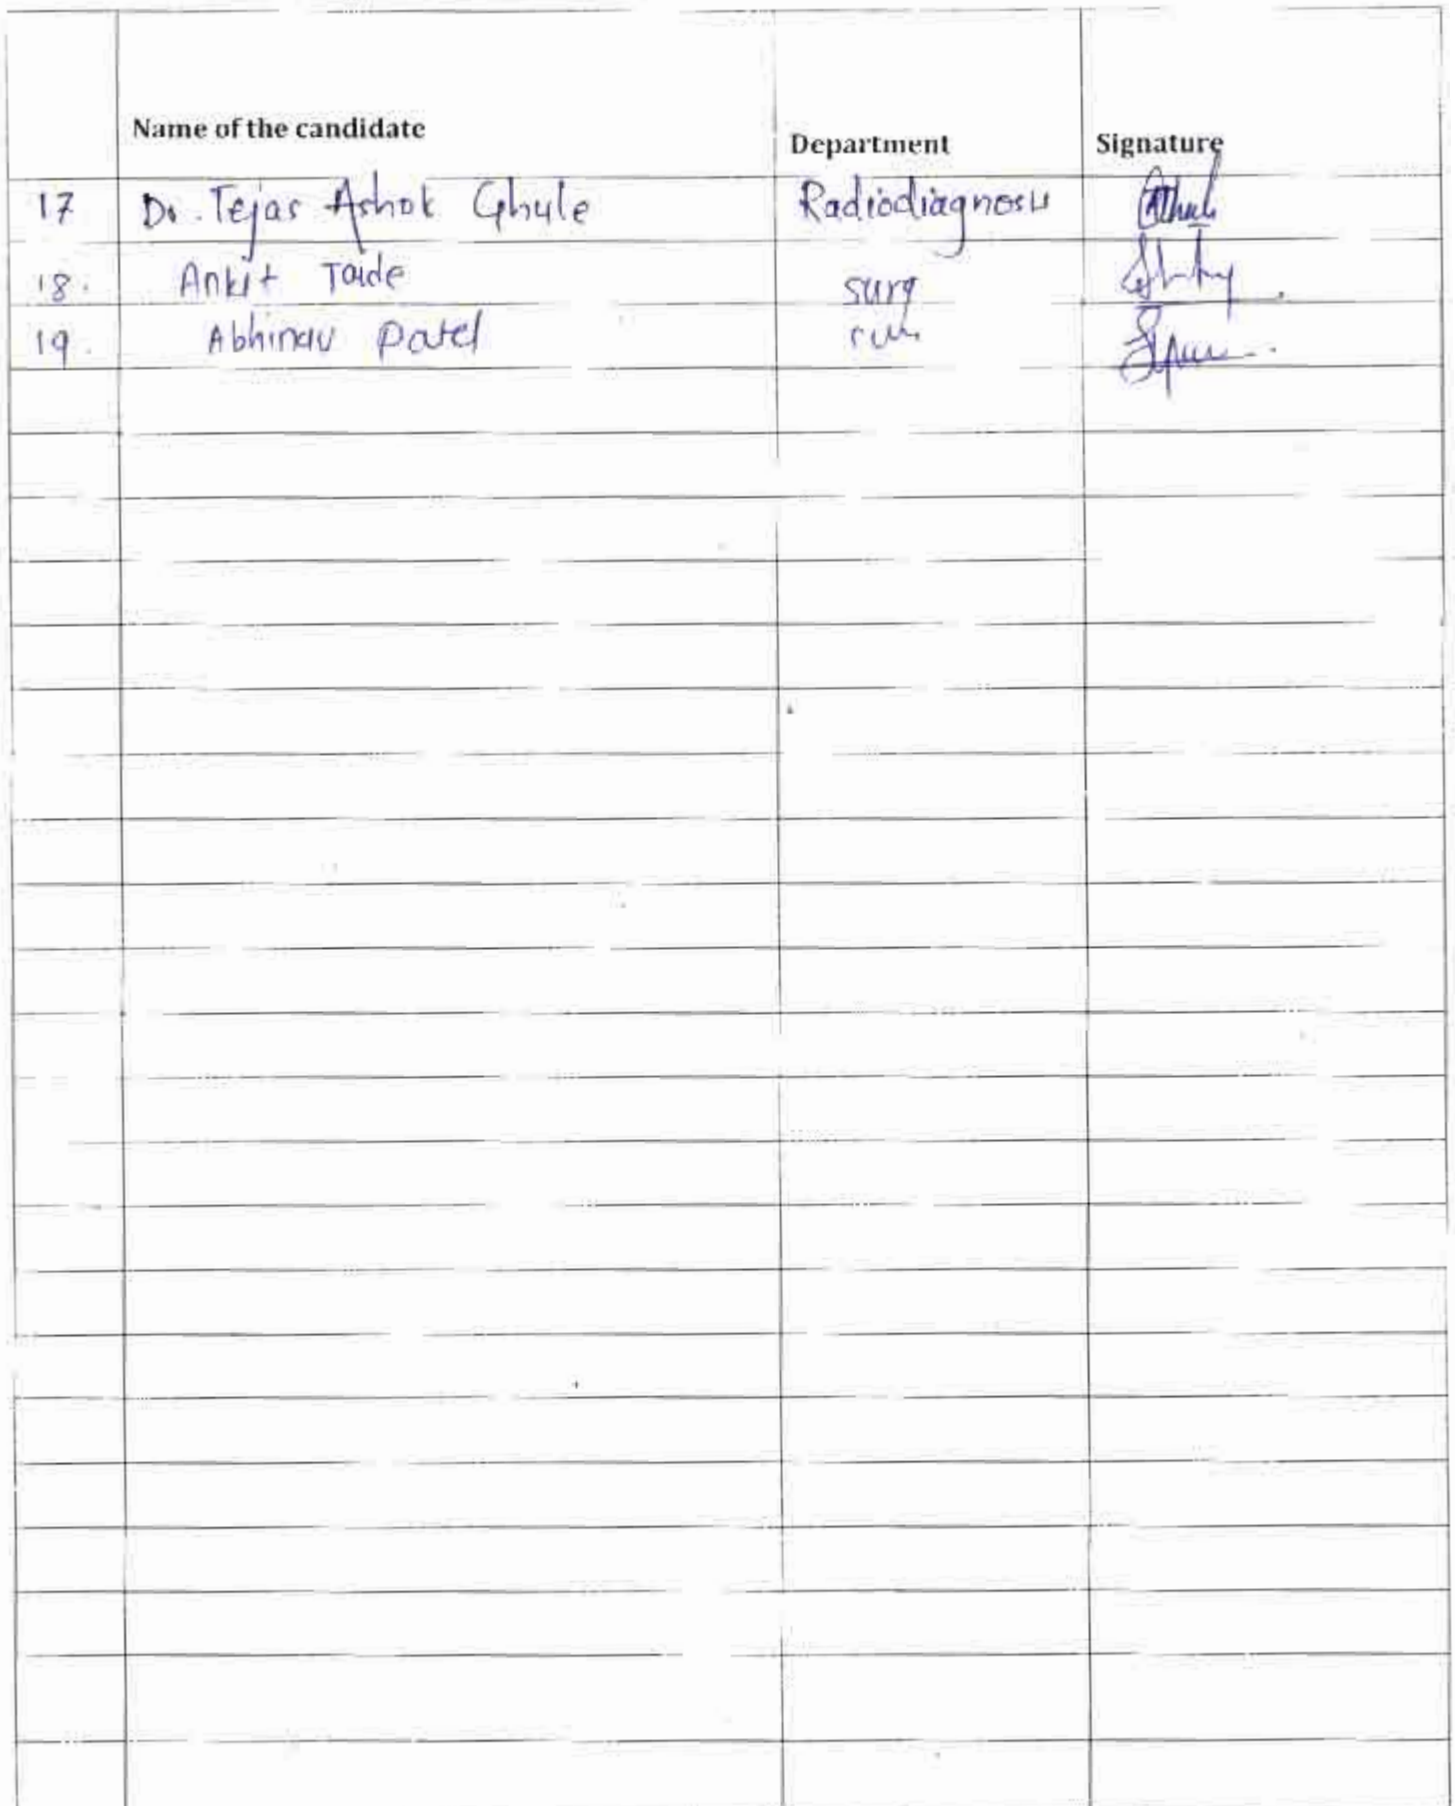 Name of the candidate Department Signature
17 Dr. Tejas Ashok Ghule Radiodiagnosis
18. Ankit Taide surg
19. Abhinav Patel